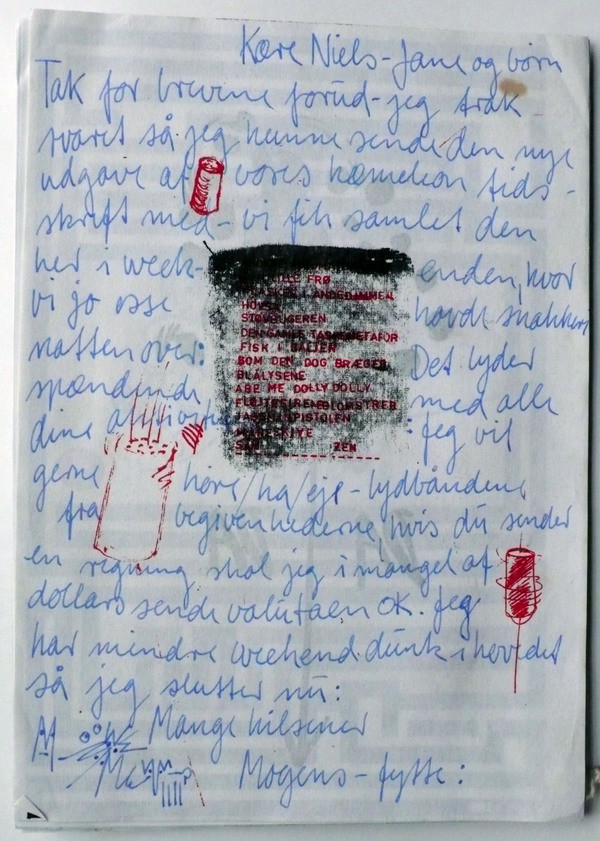 Kære Niels-Jane og børn
Tak for brevene forud-jeg trak
svaret så jeg kunne sende den nye
udgave af vores hæmekon tids-
skrift med- vi fik samlet den
her i week- enden, hvor
vi jo osse havde snakket
natten over: Det lyder
spændende med alle
dine Jeg vil
gerne høre/ha/eje- lydbåndene
fra begivenhederne, hvis du sender
en regning skal jeg i mangel af
dollars sende valutaen OK. Jeg
har mindre weekend-dunk i hovedet
så jeg slutter nu:
Mange hilsener
Mogens-fytte:
FRØ
ANDEDAMMEN
STØVSUGEREN
DEN GAMLE
FISK I
SOM DEN DOG BRÆGER
BLÅLYSENE
ABE ME DOLLY DOLLY
PISTOLEN
ZEN